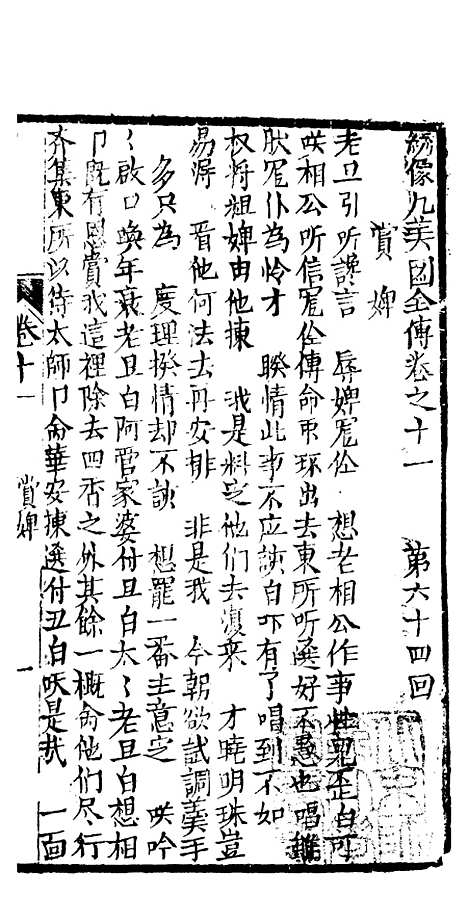 綉像九美図全傳卷之十一 第六十四回
賞婢
老旦引听讒言 辱婢冤仆 想老相公作事性見歪白可
咲相公听信冤仆傳命丫环出去東所听選好不愚也唱雖
肰冤仆為怜才 睽情此事不应該白吓有了唱到不如
权将粗婢由他揀 我是料㝎他們去復来 才曉明珠豈
易淂 看他何法去再安排 非是我 今朝欲試調羮手
多只為 度理揆情却不該 想罷一番主意㝎 咲吟
〻啟口喚年衰老旦白阿管家婆付旦白太〻老旦白想相
卩既有恩賞我這裡除去四香之外其餘一概命他們尽行
齐集東所以待太師卩命華安揀選付丑白咲是哉 一面
卷十一 賞婢 一